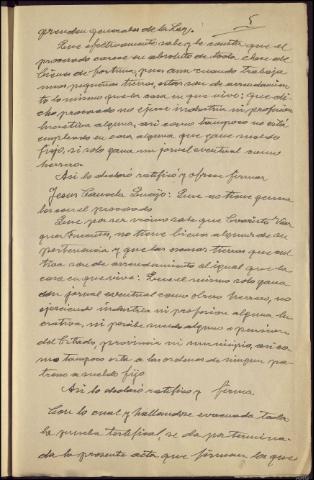 5
prenden generales de la Ley.
Que efectivamente sabe y le consta que el
procesado carece en absoluto de toda clase de
bienes de fortuna, pues aun cuando trabaja
unas pequeñas tierras, estas son de arrendamien-
to lo mismo que la casa en que vive; que di-
cho procesado no ejerce industria ni profesion
lucrativa alguna, asi como tampoco no está
empleado en casa alguna que gane sueldo
fijo, si solo gana un jornal eventual como
obrero.
Asi lo declaró ratificó y ofrece firmar
Jesus
: Que no tiene genera-
les con el procesado
Que por ser vecino sabe que
no tiene bienes algunos de su
pertenencia y que las escasas tierras que cul-
tiva son de arrendamiento al igual que la
casa en que vive: Que el mismo solo gana
un jornal eventual como obrero, no
ejerciendo industria ni profesion alguna lu-
crativa, ni percibe sueldo alguno o pension
del Estado, provincia ni municipio, asi co-
mo tampoco esta a las ordenes de ningun pa-
trono a sueldo fijo
Asi lo declaró ratificó y firma
Con lo cual y hallandose evacuada toda
la prueba testifical, se da por termina-
da la presente acta que firman los que